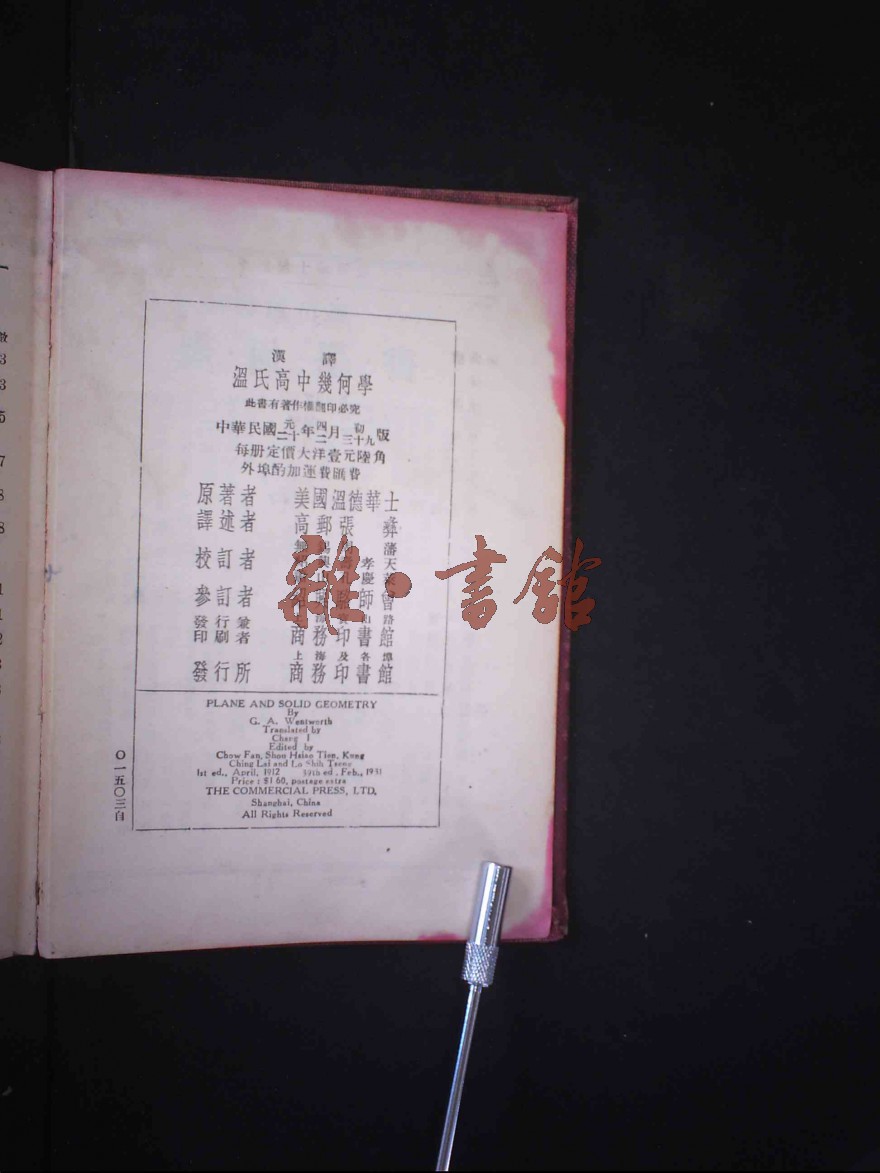 漢譯
溫氏高中幾何學
此書有著作權翻印必究
中華民國元年四月初版
二十年二月三十九版
每册定價大洋壹元陸角
外埠酌加運費匯費
原著者 美國溫德華士
譯述者 高郵張彝
校訂者
參訂者
發行兼印刷者 商務印書館
上海及各埠
發行所 商務印書館
PLANE AND SOLID GEOMETRY
By
G. A. Wentworth
Translated by
Chang I
Edited by
Chow Fan, Shou Hsiao Tien, Kung
Ching Lai and Lo Shih Tseng
1st ed., April, 1912 39th ed. Feb., 1931
Price: $1.60, postage extra
THE COMMERCIAL PRESS, LTD.
Shanghai, China
All Rights Reserved
〇一五〇三自
雜·書館